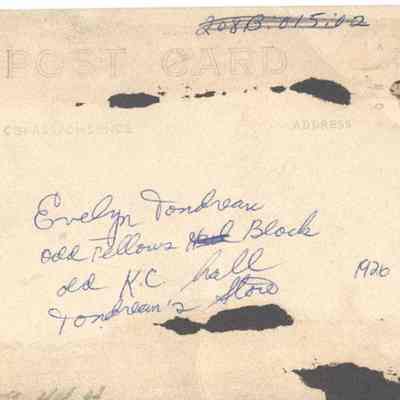 208B.015.02
POST CARD
CORRESPONDENCE ADDRESS
Evelyn Tondreau
odd Fellows Block
old K.C hall 1920
Tondreau's Store